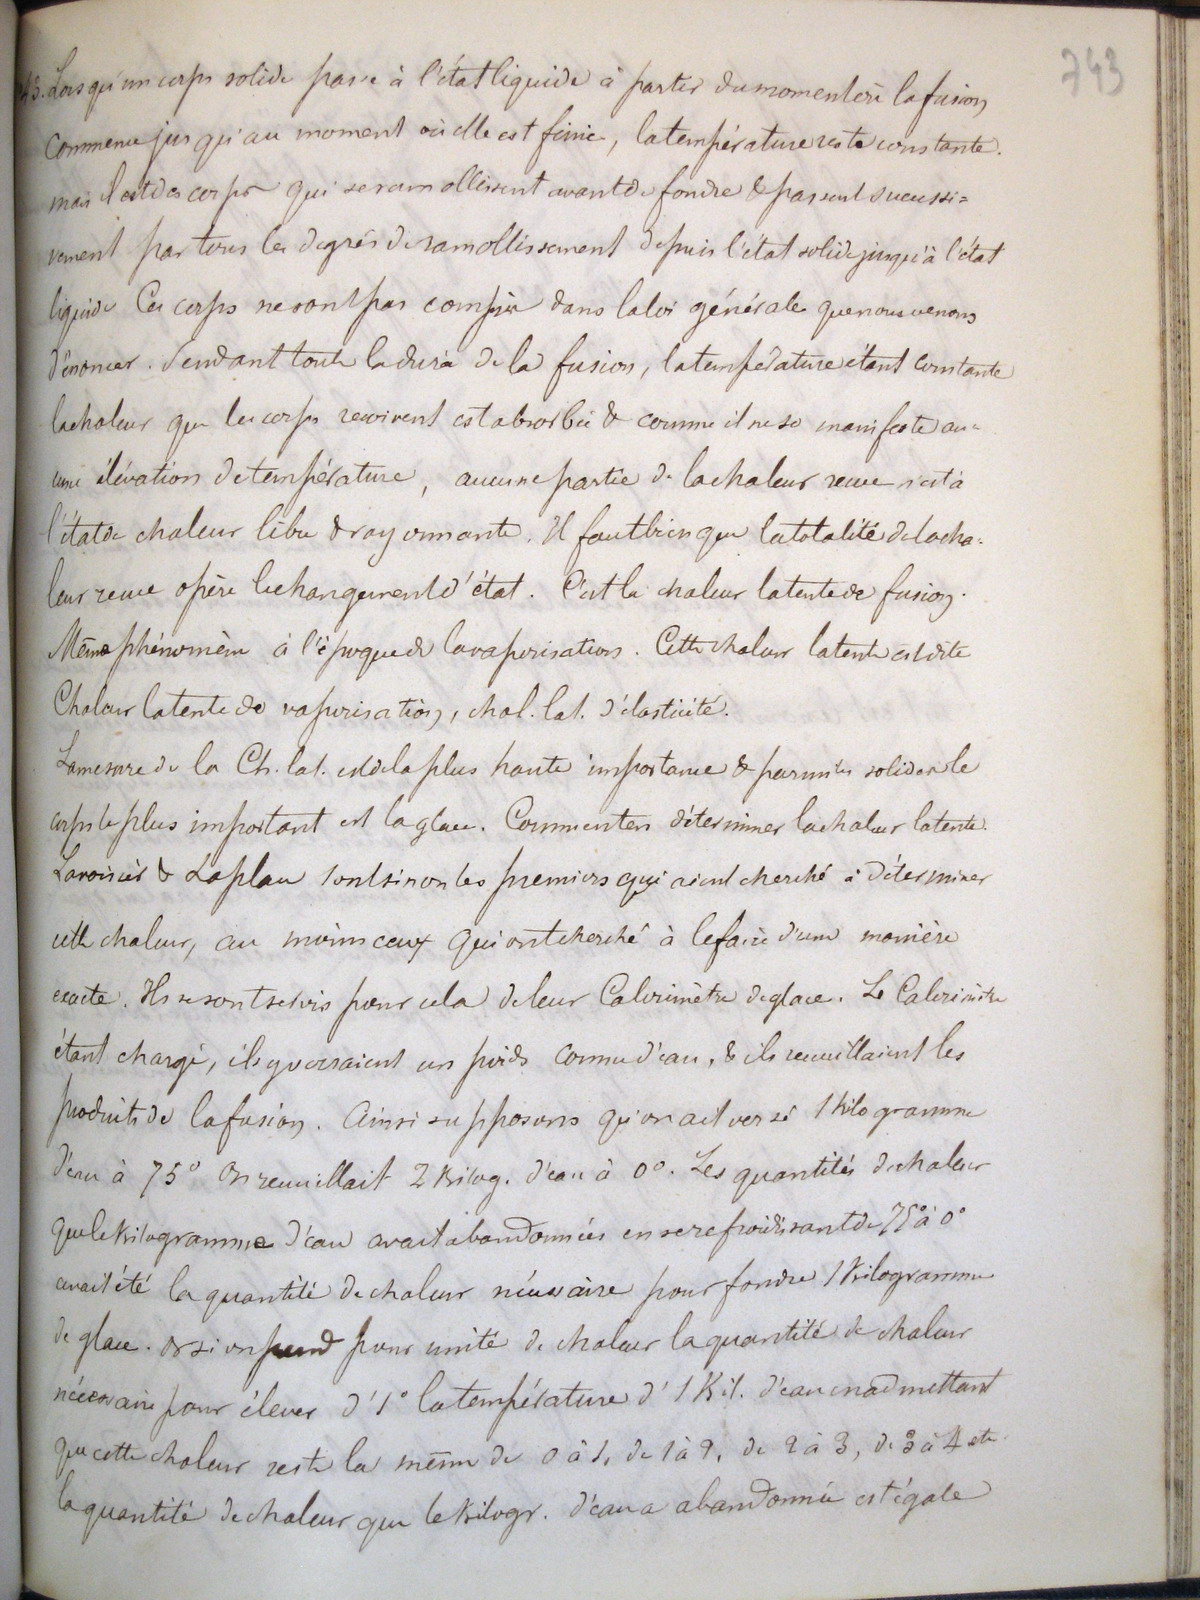 743
Lorsqu'un corps solide passe à l'état liquide à partir du moment où la fusion
commence jusqu'au moment où elle est finie, la température reste constante.
mais il est des corps qui se ramollissent avant de fondre & passent successi=
vement par tous les degrés de ramollissement depuis l'état solide jusqu'à l'état
liquide Ces corps ne sont pas compris dans la loi générale que nous venons
d'énoncer. Pendant toute la durée de la fusion, la température étant constante
la chaleur que les corps reçoivent est absorbée & comme il ne se manifeste au=
cune élévation de température, aucune partie de la chaleur reçue n'est à
l'état de chaleur libre & rayonnante. Il faut bien que la totalité de la cha=
leur reçue opère le changement d'état. C'est la chaleur latente de fusion.
Même phénomène à l'époque de la vaporisation. Cette chaleur latente est dite
Chaleur latente de vaporisation, chal. lat. d'élasticité.
La mesure de la Ch. lat. est de la plus haute importance & parmi les solides le
corps le plus important est la glace. Comment en déterminer la chaleur latente.
Lavoisier & Laplace sont sinon les premiers qui aient cherché à déterminer
cette chaleur, au moins ceux qui ont cherché à le faire d'une manière
exacte. Ils se sont servis pour cela de leur Calorimètre de glace. Le Calorimètre
étant chargé, ils y versaient un poids connu d'eau, & ils recueillaient les
produits de la fusion. Ainsi supposons qu'on ait versé 1 kilogramme
d'eau à 75° On recueillait 2 kilog. d'eau à 0°. Les quantités de chaleur
que le kilogramme d'eau avait abandonnées en se refroidissant de 75° à 0°
avait été la quantité de chaleur nécessaire pour fondre 1 kilogramme
de glace. Or si on prend pour unité de chaleur la quantité de chaleur
nécessaire pour élever d'1° la température d'1 Kil. d'eau en admettant
que cette chaleur reste la même de 0 à 1, de 1 à 2, de 2 à 3, de 3 à 4 etc
la quantité de chaleur que le kilogr. d'eau a abandonnée est égale